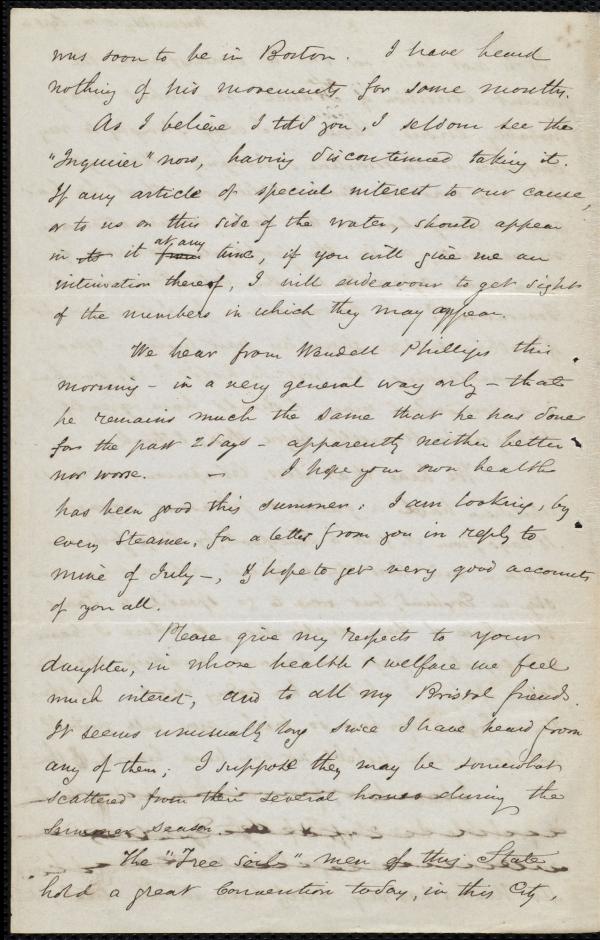 was soon to be in Boston. I have heard
nothing of his movements for some months.
As I believe I told you, I seldom see the
"Inquirer" now, having discontinued taking it.
If any article of special interest to our cause,
or to us on this side of the water, should appear
in its it from at any time, if you will give me an
intimation thereof, I will endeavour to get sight
of the numbers in which they may appear.
We hear from Wendell Phillips this
morning - in a very general way only - that
he remains much the same that he has done
for the past 2 days - apparently neither better
nor worse. - I hope your own health
has been good this summer; I am looking, by
every Steamer, for a letter from you in reply to
mine of July -, & hope to get very good accounts
of you all.
Please give my respects to your
daughter, in whose health & welfare we feel
much interest, and to all my Bristol friends.
It seems unusually long since I have heard from
any of them; I suppose they may be somewhat
scattered from their several homes during the
summer season.
The "Free soil" men of this State
hold a great Convention today, in this City,